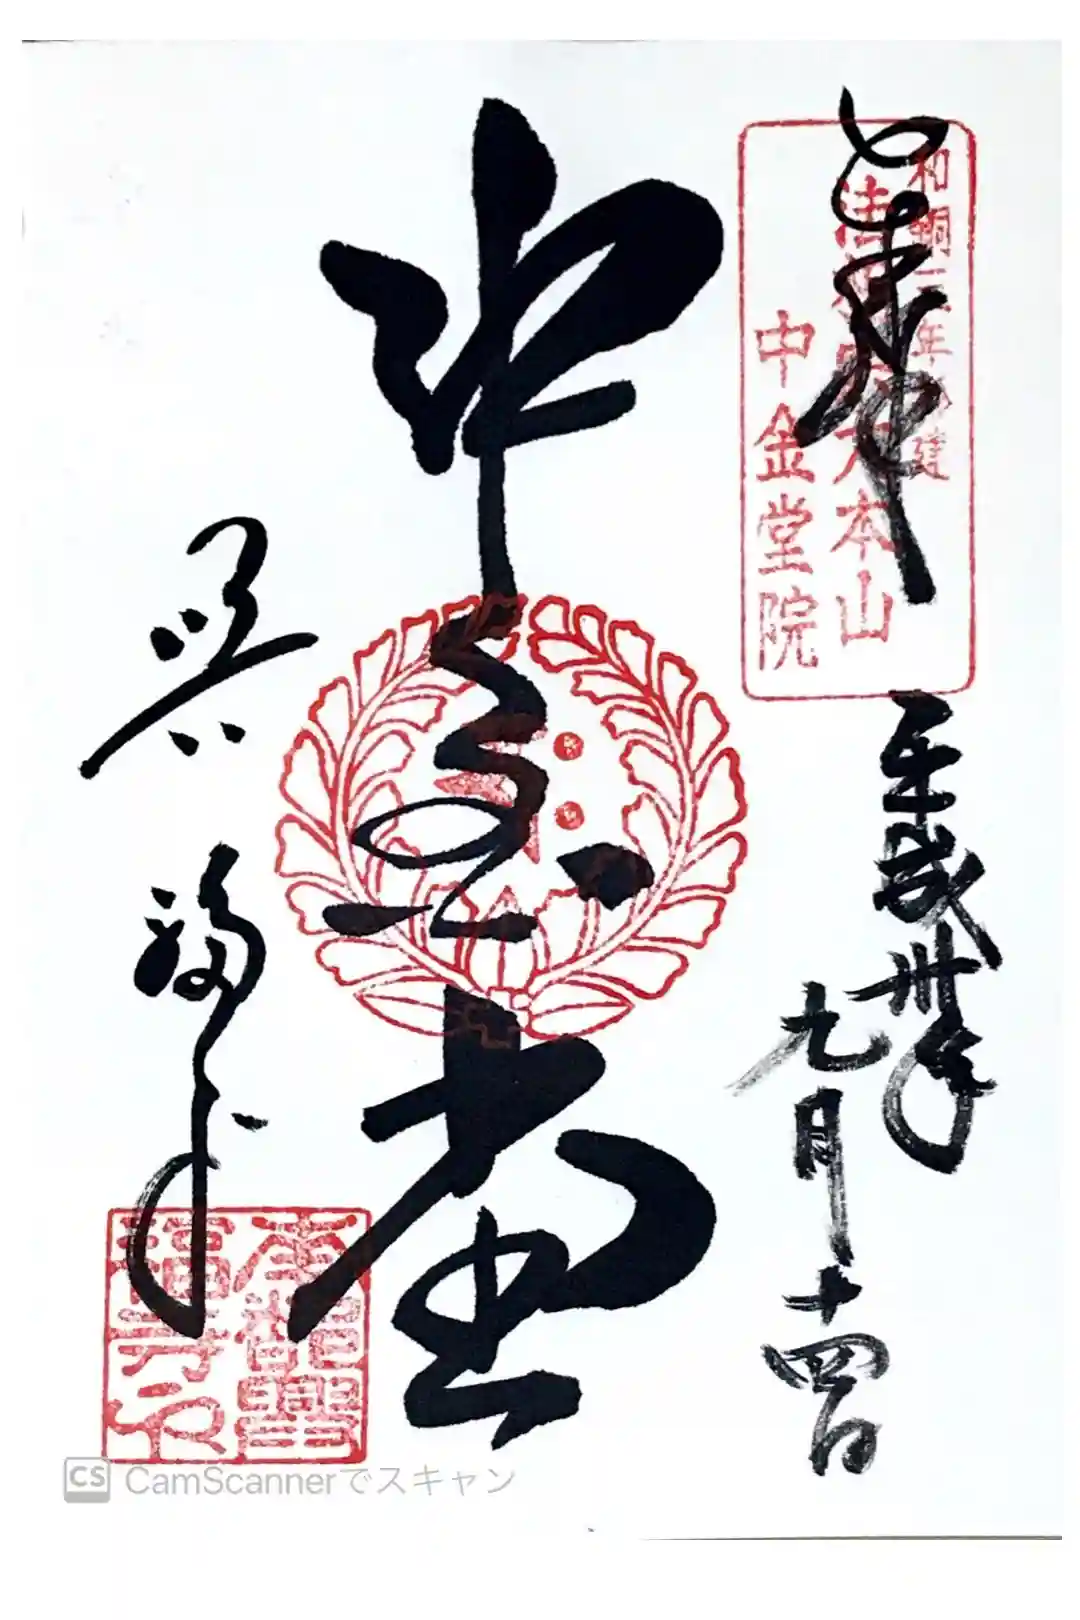 奉拝
和銅三年創建
法相宗大本山
中金堂院
平成卅年
九月十四日
中金堂
興福寺
CS CamScannerでスキャン